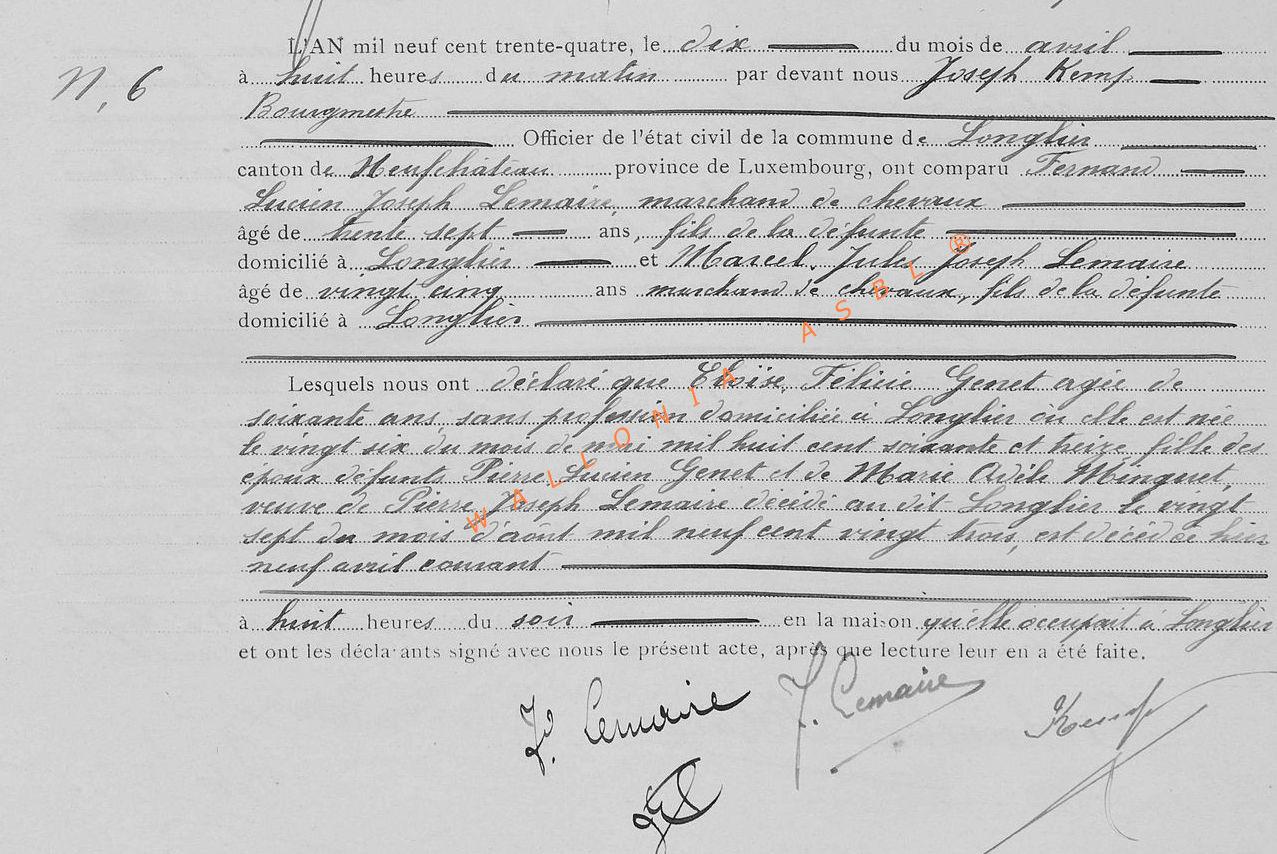 L'AN mil neuf cent trente-quatre, le dix du mois de avril
N. 6
à huit heures du matin par devant nous Joseph Kemp
Bourgmestre
Officier de l'état civil de la commune de Longlier
canton de Neufchâteau province de Luxembourg, ont comparu Fernand
Lucien Joseph Lemaire, marchand de chevaux
âgé de trente sept ans, fils de la défunte
domicilié à Longlier et Marcel, Jules Joseph Lemaire
âgé de vingt cinq ans marchand de chevaux, fils de la défunte
domicilié à Longlier
Lesquels nous ont déclaré que Eloïse, Félicie Genet agée de
soixante ans, sans profession domiciliée à Longlier où elle est née
le vingt six du mois de mai mil huit cent soixante et treize, fille des
époux défunts Pierre Lucien Genet et de Marie Adèle Minguet,
veuve de Pierre Joseph Lemaire décédé au dit Longlier le vingt
sept du mois d'août mil neuf cent vingt trois, est décédée hier
neuf avril courant
à huit heures du soir en la maison qu'elle occupait à Longlier
et ont les déclarants signé avec nous le présent acte, après que lecture leur en a été faite.
Lemaire J. Lemaire Kemp
WALLONIA ASBL ®